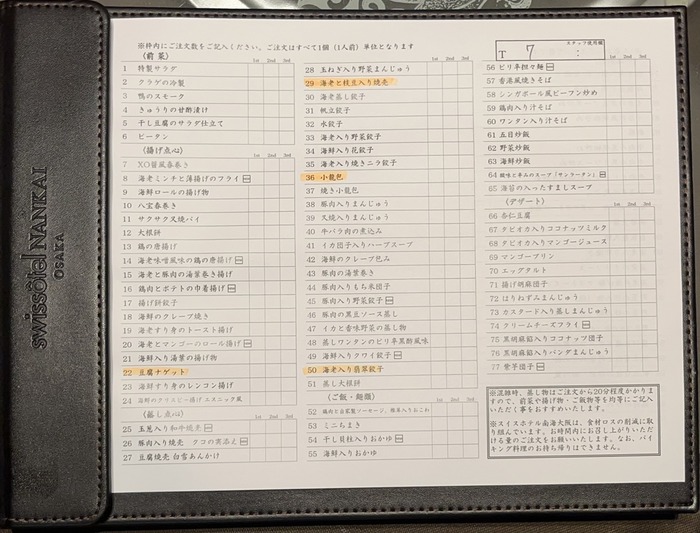 swissôtel NANKAI
OSAKA
※枠内にご注文数をご記入ください。ご注文はすべて1個（1人前）単位となります
スタッフ使用欄
T 7 :
(前菜)
1st 2nd 3rd
1 特製サラダ
2 クラゲの冷製
3 鴨のスモーク
4 きゅうりの甘酢漬け
5 干し豆腐のサラダ仕立て
6 ピータン
(揚げ点心)
1st 2nd 3rd
7 XO醤風春巻き
8 海老ミンチと薄揚げのフライ
9 海鮮ロールの揚げ物
10 八宝春巻き
11 サクサク叉焼パイ
12 大根餅
13 鶏の唐揚げ
14 海老味噌風味の鶏の唐揚げ
15 海老と豚肉の湯葉巻き揚げ
16 鶏肉とポテトの巾着揚げ
17 揚げ餅餃子
18 海鮮のクレープ焼き
19 海老すり身のトースト揚げ
20 海老とマンゴーのロール揚げ
21 海鮮入り湯葉の揚げ物
22 豆腐ナゲット
23 海鮮すり身のレンコン揚げ
24 海鮮のクリスピー揚げ エスニック風
(蒸し点心)
1st 2nd 3rd
25 玉葱入り和牛焼売
26 豚肉入り焼売 クコの実添え
27 豆腐焼売 白雪あんかけ
28 玉ねぎ入り野菜まんじゅう
29 海老と枝豆入り焼売
30 海老蒸し餃子
31 帆立餃子
32 水餃子
33 海老入り野菜餃子
34 海鮮入り花餃子
35 海老入り焼きニラ餃子
36 小龍包
37 焼き小龍包
38 豚肉入りまんじゅう
39 叉焼入りまんじゅう
40 牛バラ肉の煮込み
41 イカ団子入りハーブスープ
42 海鮮のクレープ包み
43 豚肉の湯葉巻き
44 豚肉入りもち米団子
45 豚肉入り野菜餃子
46 豚肉の黒豆ソース蒸し
47 イカと香味野菜の蒸し物
48 蒸しワンタンのピリ辛黒酢風味
49 海鮮入りクワイ餃子
50 海老入り翡翠餃子
51 蒸し大根餅
(ご飯・麺類)
1st 2nd 3rd
52 鶏肉と自家製ソーセージ、椎茸入りおこわ
53 ミニちまき
54 干し貝柱入りおかゆ
55 海鮮入りおかゆ
1st 2nd 3rd
56 ピリ辛担々麺
57 香港風焼きそば
58 シンガポール風ビーフン炒め
59 鶏肉入り汁そば
60 ワンタン入り汁そば
61 五目炒飯
62 野菜炒飯
63 海鮮炒飯
64 酸味と辛みのスープ「サンラータン」
65 海苔の入ったすましスープ
(デザート)
1st 2nd 3rd
66 杏仁豆腐
67 タピオカ入りココナッツミルク
68 タピオカ入りマンゴージュース
69 マンゴープリン
70 エッグタルト
71 揚げ胡麻団子
72 はりねずみまんじゅう
73 カスタード入り蒸しまんじゅう
74 クリームチーズフライ
75 黒胡麻餡入りココナッツ団子
76 黒胡麻餡入りパンダまんじゅう
77 紫芋団子
※混雑時、蒸し物はご注文から20分程度かかりますので、前菜や揚げ物・ご飯物等を均等にご記入いただく事をおすすめいたします。
※スイスホテル南海大阪は、食材ロスの削減に取り組んでいます。お時間内にお召し上がりいただける量のご注文をお願いいたします。なお、バイキング料理のお持ち帰りはできません。